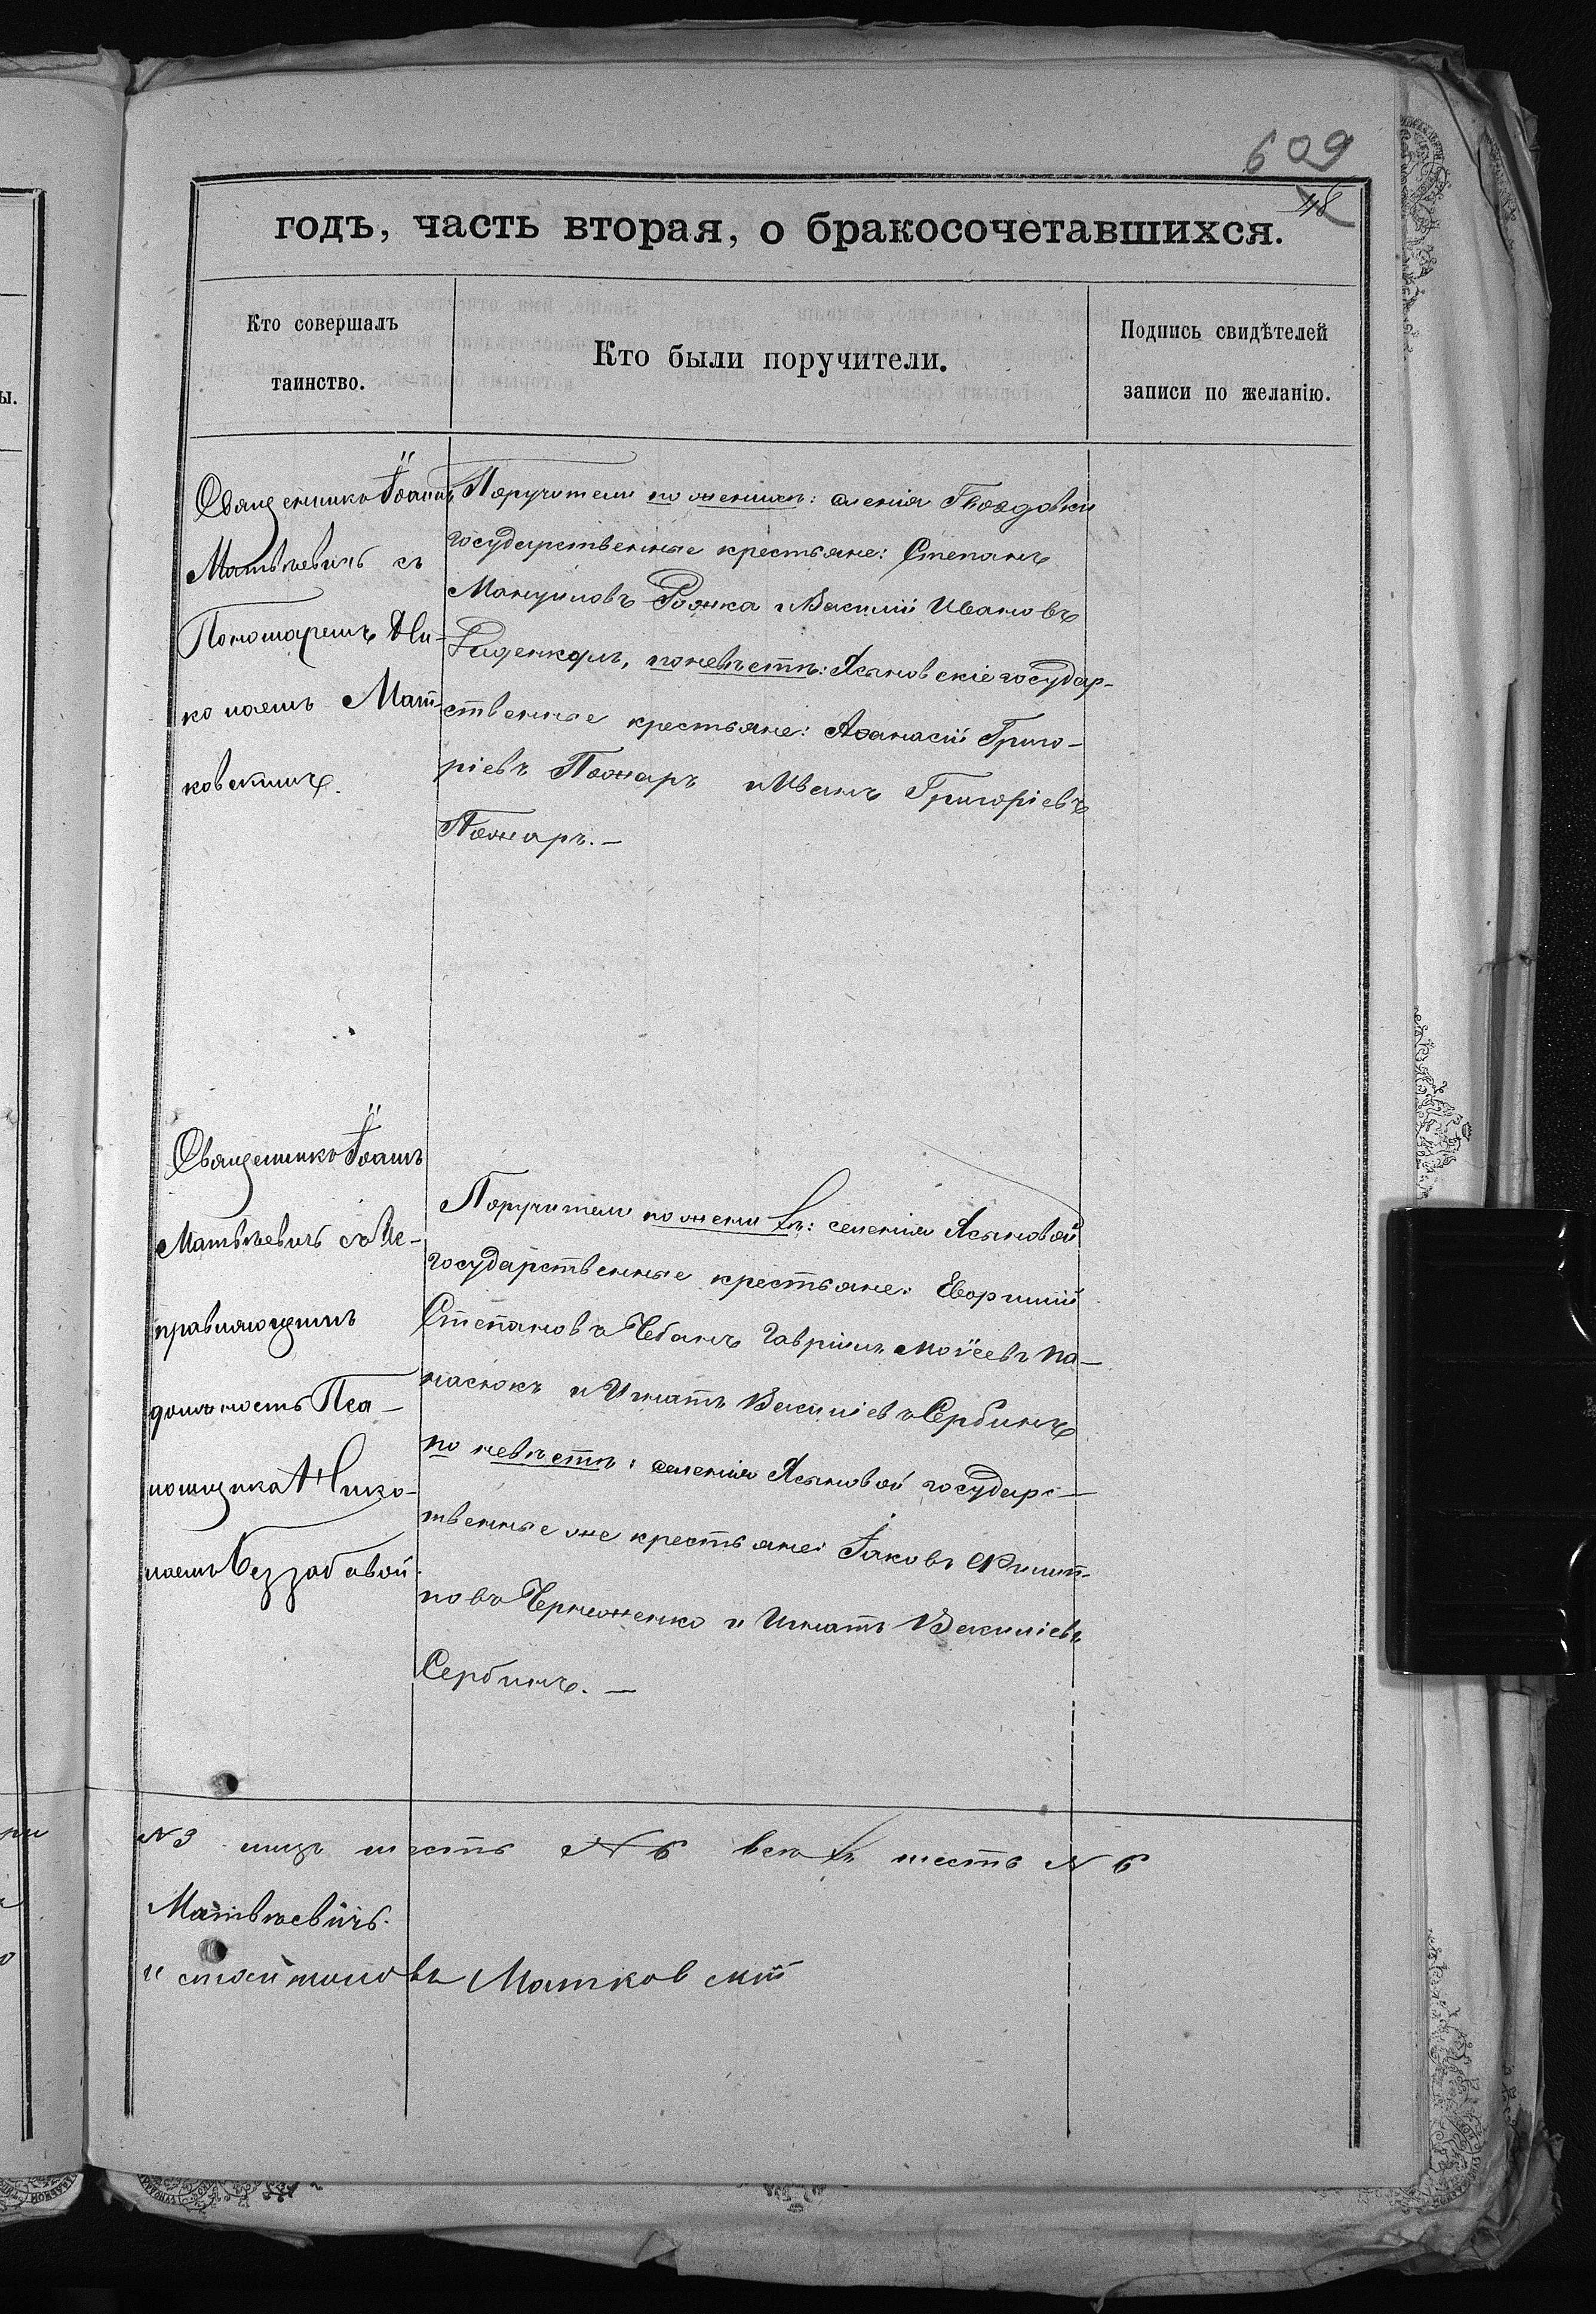 609
48
годъ, часть вторая, о бракосочетавшихся.
Кто совершалъ
таинство.
Кто были поручители.
Подпись свидѣтелей
записи по желанію.
Священникъ Іоаннъ
Матвѣевичъ съ
Пономаремъ Ни-
колаемъ Мат-
ковскимъ.
Поручители по женихѣ: селенія Гвоздовки
государственные крестьяне: Степанъ
Мануиловъ и Василій Ивановъ
по невѣстѣ: Ясыновскіе государ-
ственные крестьяне: Аѳанасій Григо-
ріевъ Пожаръ и Иванъ Григоріевъ
Пожаръ.—
Священникъ Іоаннъ
Матвѣевичъ съ Ис-
правляющимъ
должность Пса-
ломщика Нико-
лаемъ Беззабавой
Поручители по женихѣ: селенія Ясыновой
государственные крестьяне:
Степановъ Чебанъ Гавріилъ Моѵсеевъ Па-
насюкъ и Игнатъ Василіевъ Сербинъ
по невѣстѣ: селенія Ясыновой государс-
твенные же крестьяне: Іаковъ Филип-
повъ и Игнатъ Василіевъ
Сербинъ.—
ы.
№ лицъ шесть № 6 всѣхъ шесть № 6
Матвѣевичъ.
Матковскій